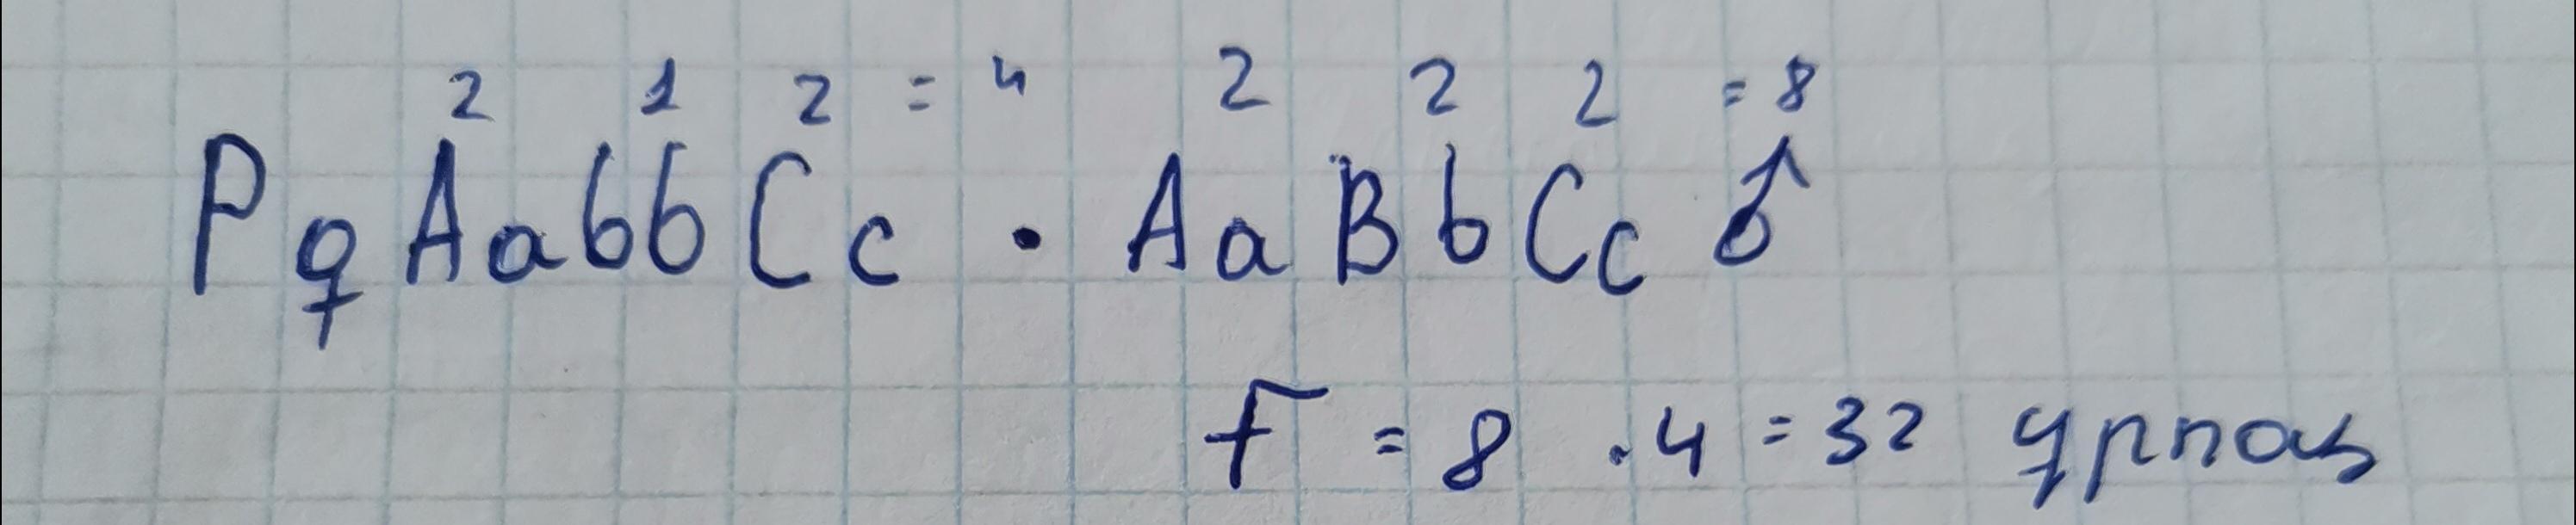 2 1 2 = 4 2 2 2 = 8
P ♀ Aa bb Cc · Aa Bb Cc ♂
F = 8 · 4 = 32 ұрпақ